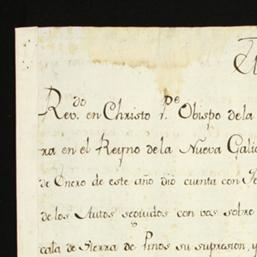 Rev.do en Christo P.e Obispo de la
ra en el Reyno de la Nueva Galic
de Enero de este año dió cuenta con
de los Autos seguidos con vos sobre
cala de Sierra de Pinos su supresion, y